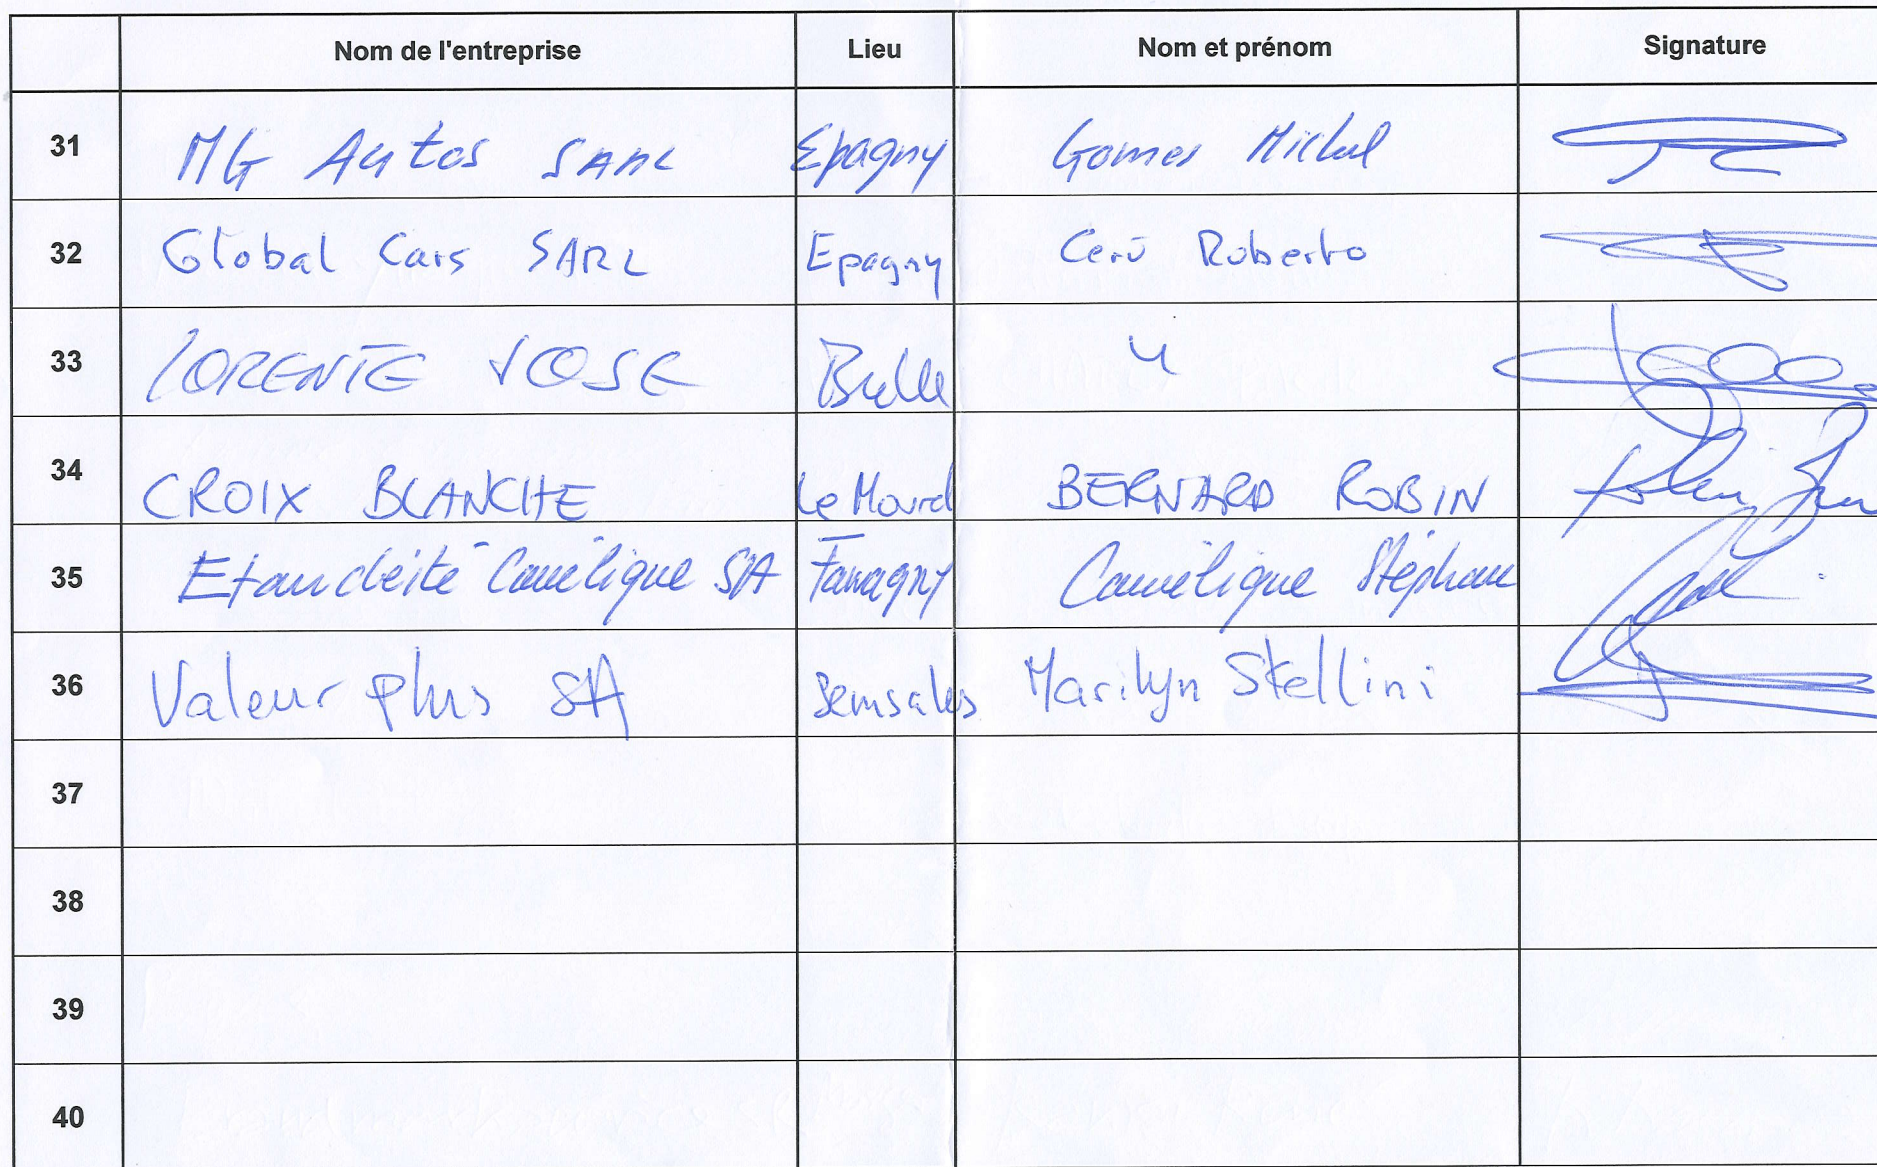 Nom de l'entreprise Lieu Nom et prénom Signature
31 MG Autos SARL Epagny Gomes Michel
32 Global Cars SARL Epagny Ceru Roberto
33 LORENTE JOSE Bulle "
34 CROIX BLANCHE Le Mouret BERNARD ROBIN
35 Etanchéité SA Farvagny Stéphane
36 Valeur plus SA Semsales Marilyn Stellini
37
38
39
40